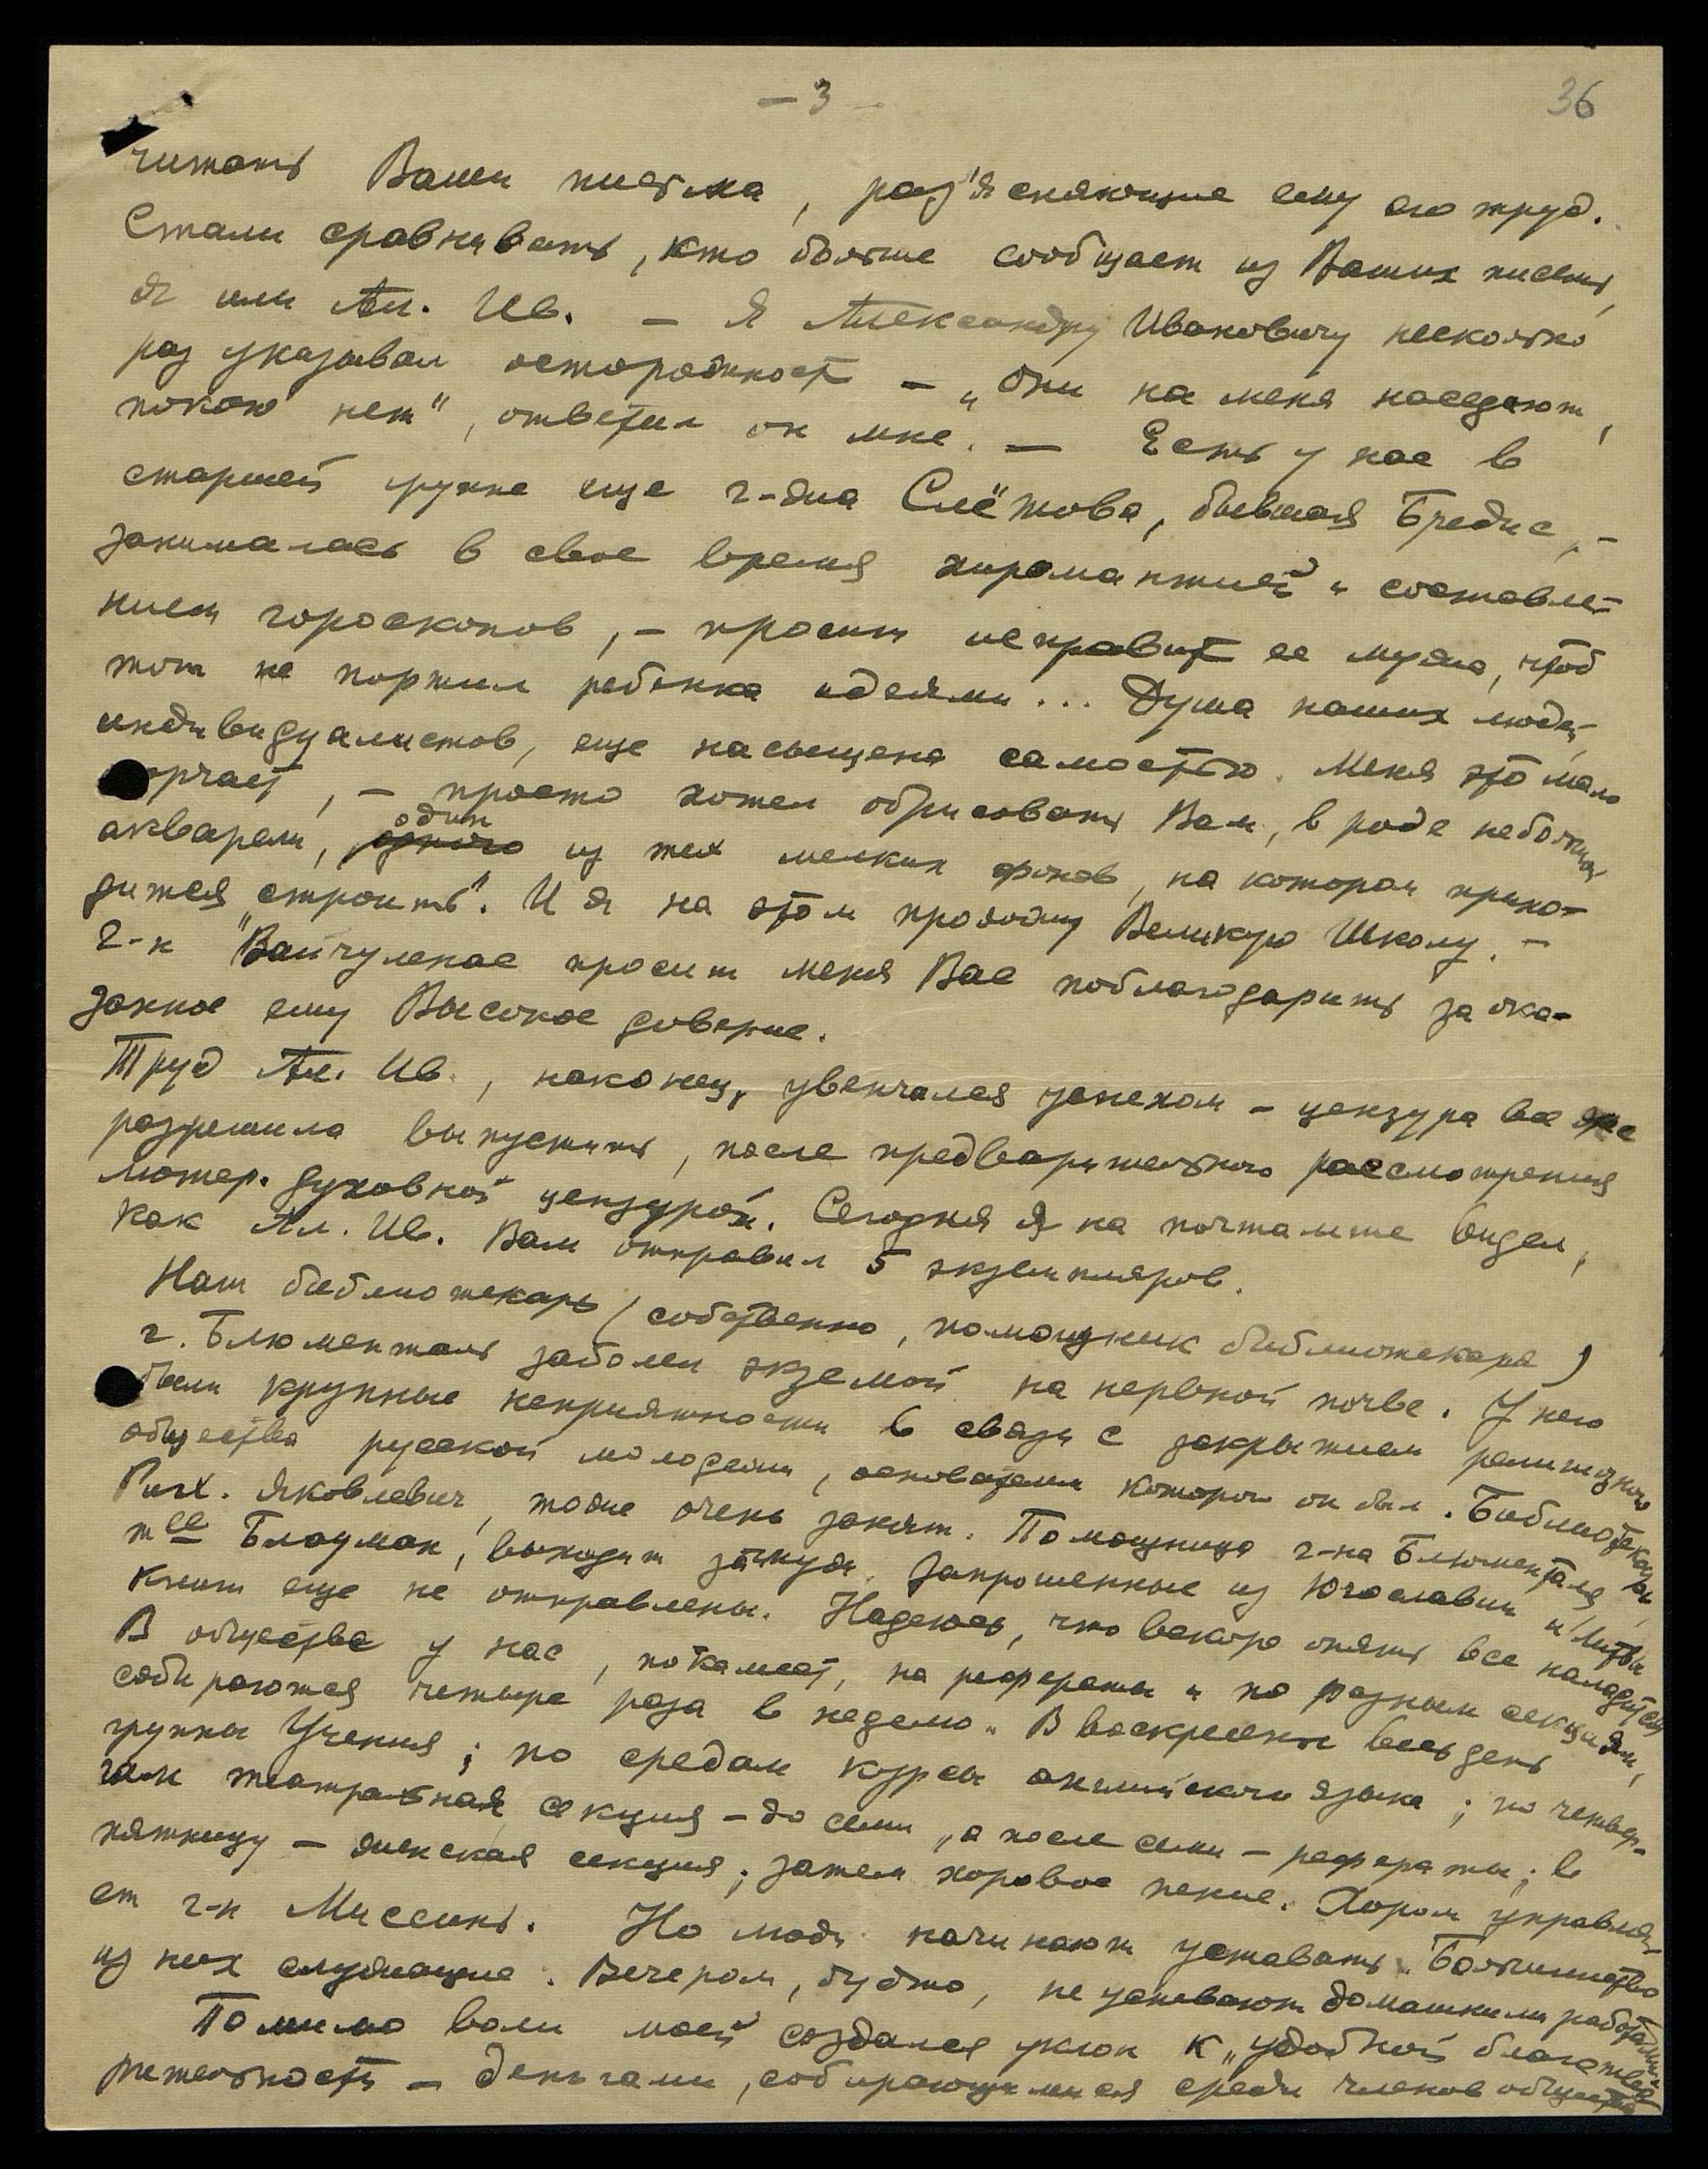 – 3 –
36
читать Ваши письма, раз'ясняющие ему его труд.
Стали сравнивать, кто больше сообщает из Ваших писем,
я или Ал. Ив. – Я Александру Ивановичу несколько
раз указывал осторожность – „они на меня наседают,
покою нет", ответил он мне. – Есть у нас в
старшей группе еще г-жа Слётова, бывшая Бредис, –
занималась в свое время хиромантией и составле-
нием гороскопов, – просит исправить ее мужа, чтоб
тот не портил ребенка идеями... Душа наших людей,
индивидуалистов, еще насыщена самостью. Меня это мало
огорчает, – просто хотел обрисовать Вам, в роде небольшой
акварели, один из тех мелких фонов, на котором прихо-
дится „строить". И я на этом прохожу Великую Школу. –
Г-н Вайчуленас просит меня Вас поблагодарить за ока-
занное ему Высокое доверие.
Труд Ал. Ив., наконец, увенчался успехом – цензура все же
разрешила выпустить, после предварительного рассмотрения
лютер. духовной цензурой. Сегодня я на почтамте видел,
как Ал. Ив. Вам отправил 5 экземпляров.
Наш библиотекарь (собственно, помощник библиотекаря)
г. Блюменталь заболел экземой на нервной почве. У него
были крупные неприятности в связи с закрытием религиозного
общества русской молодежи, основателем которого он был. Библиотекарь,
Рих. Яковлевич, тоже очень занят. Помощница г-на Блюменталя,
m<sup>lle</sup> Блауман, выходит замуж. Запрошенные из Югославии и Литвы
книги еще не отправлены. Надеюсь, что вскоре опять все наладится.
В обществе у нас, покамест, на рефераты и по разным секциям,
собираются четыре раза в неделю. В воскресенье весь день
группы Учения; по средам курсы английского языка; по четвер-
гам театральная секция – до семи, а после семи – рефераты; в
пятницу – женская секция; затем хоровое пение. Хором управля-
ет г-н Миссинь. Но люди начинают уставать. Большинство
из них служащие. Вечером, будто, не успевают домашними работами
Помимо воли моей создался уклон к „удобной благотво-
рительности – деньгами, собирающимися среди членов общества